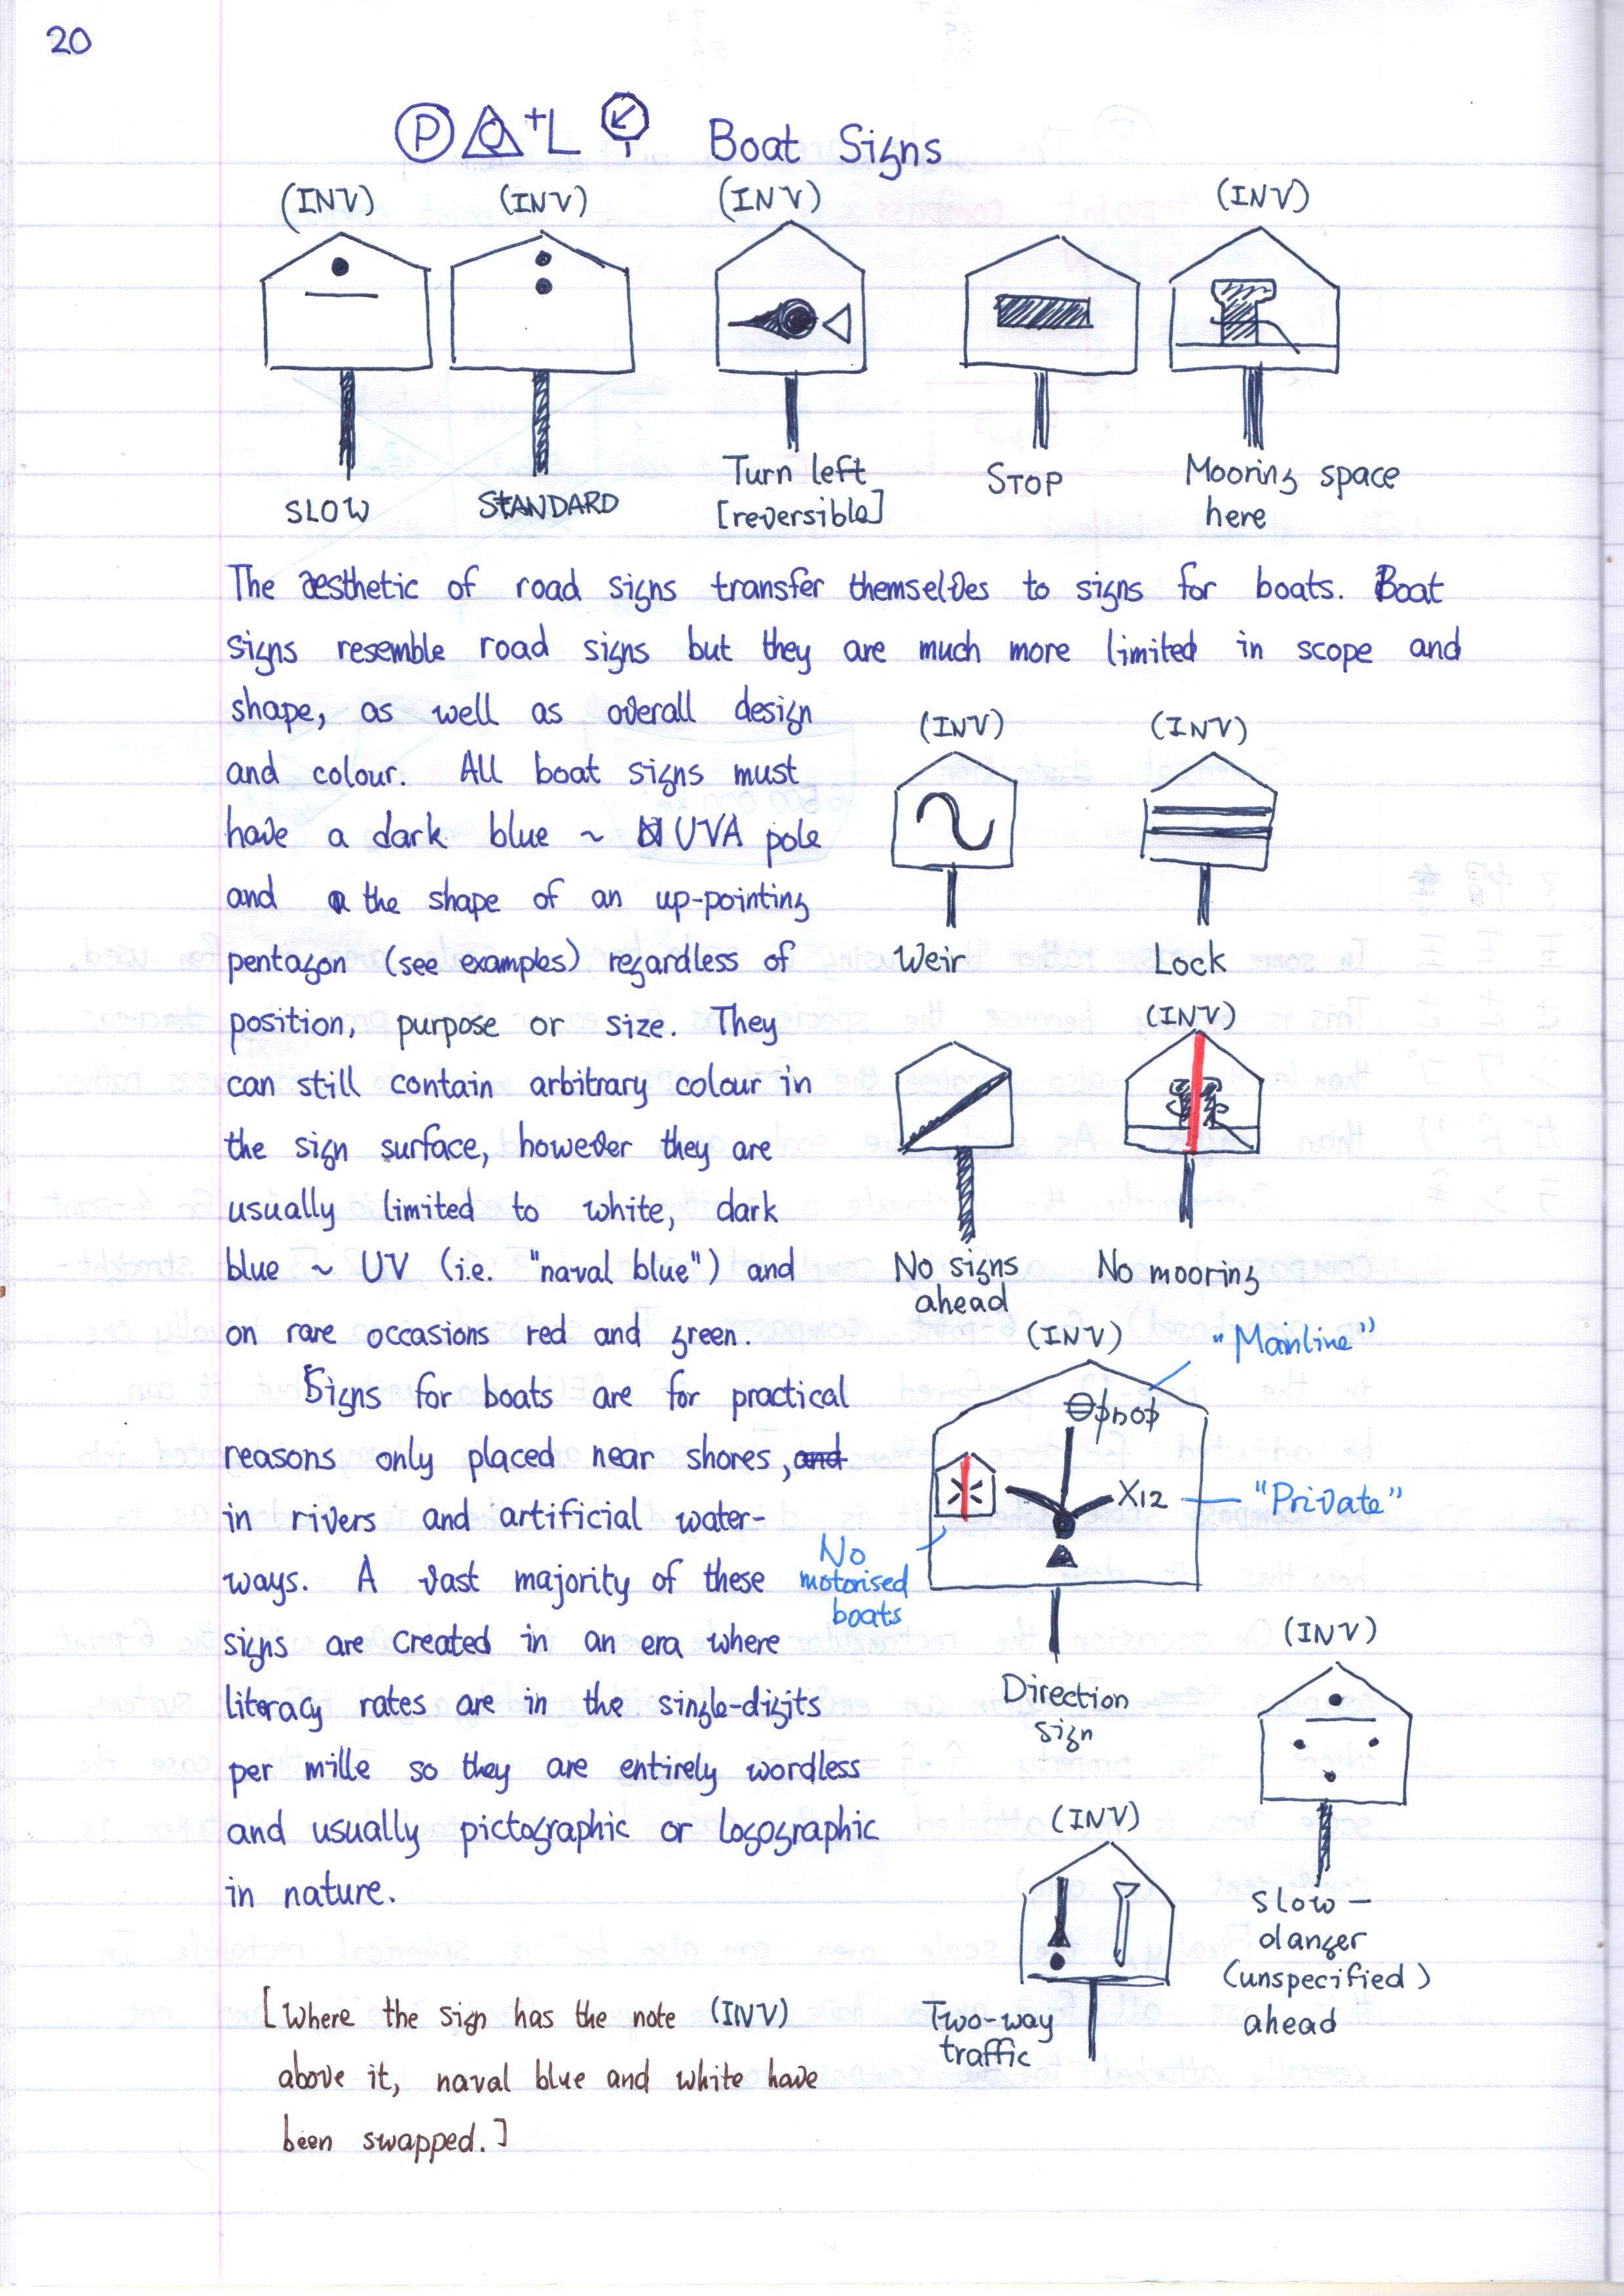 20
P +L Boat Signs
(INV) (INV) (INV) (INV)
SLOW STANDARD Turn left STOP Mooring space
[reversible] here
The æsthetic of road signs transfer themselves to signs for boats. Boat
signs resemble road signs but they are much more limited in scope and
shape, as well as overall design
and colour. All boat signs must
have a dark blue ~ UVA pole
and the shape of an up-pointing
pentagon (see examples) regardless of
position, purpose or size. They
can still contain arbitrary colour in
the sign surface, however they are
usually limited to white, dark
blue ~ UV (i.e. "naval blue") and
on rare occasions red and green.
Signs for boats are for practical
reasons only placed near shores, and
in rivers and artificial water-
ways. A vast majority of these
signs are created in an era where
literacy rates are in the single-digits
per mille so they are entirely wordless
and usually pictographic or logographic
in nature.
[Where the sign has the note (INV)
above it, naval blue and white have
been swapped.]
(INV) (INV)
Weir Lock
(INV)
No signs No mooring
ahead
(INV) "Mainline"
X12 "Private"
No
motorised
boats
Direction
sign
(INV)
Slow –
danger
(unspecified)
ahead
(INV)
Two-way
traffic